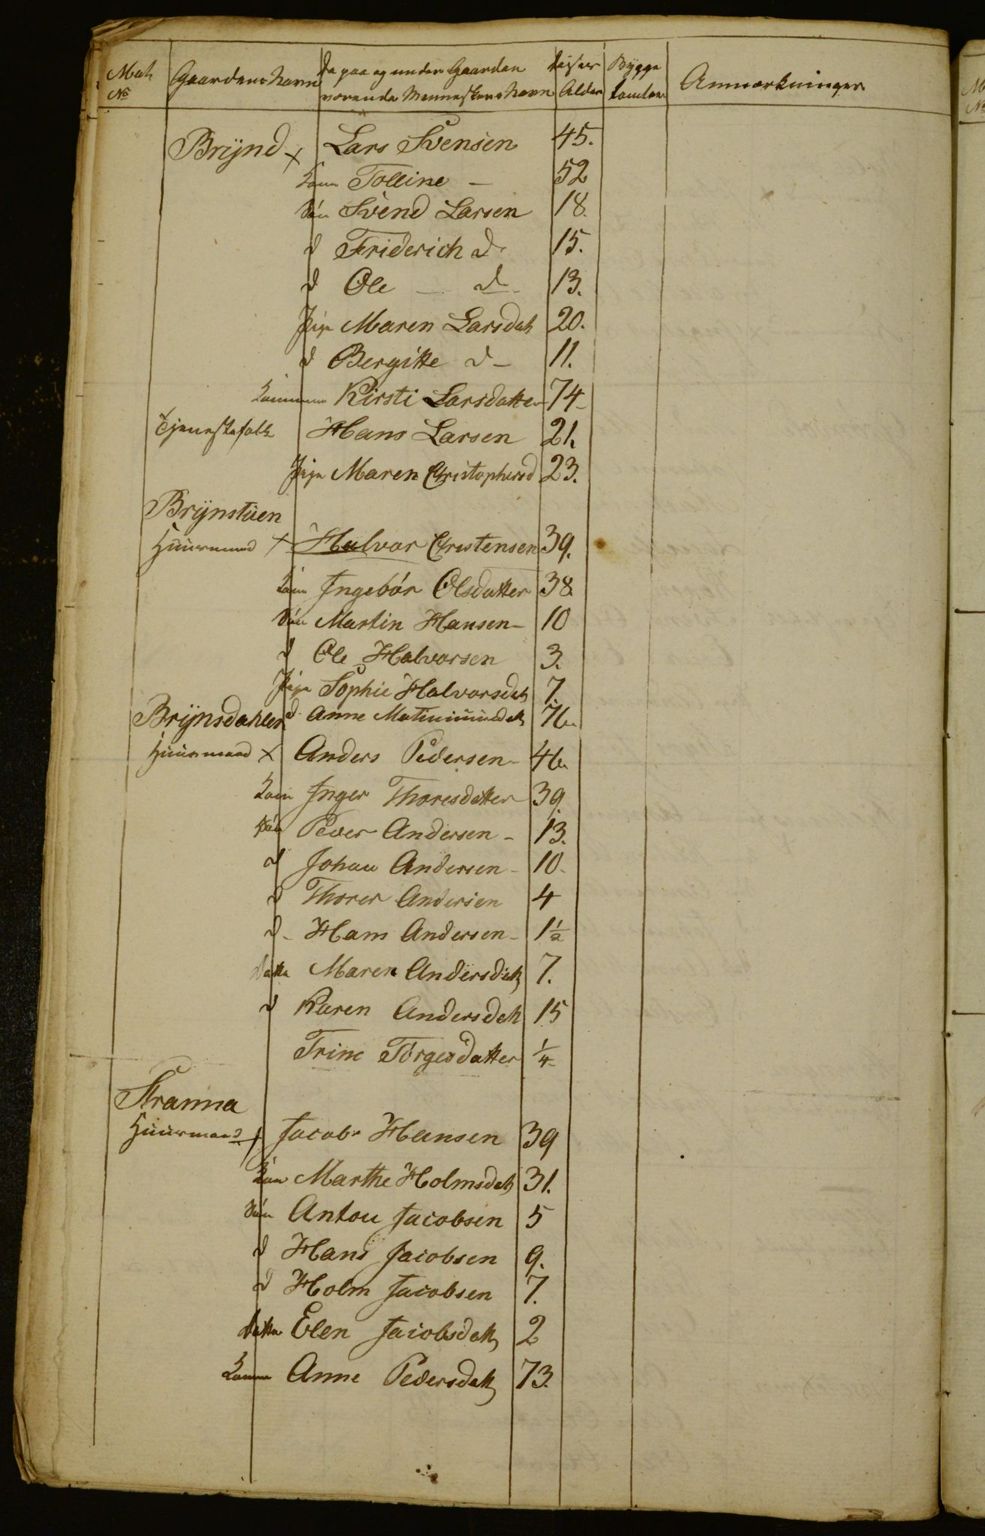 Mat. Gaardens Navn De paa og under Gaarden deres Bygge Anmærkninger
No værende Menneskers Navn Alder
Brÿnd x Lars Svensen 45.
Kone Tolline — 52
Søn Svend Larsen 18.
d Friderich d. 15.
d Ole — d. 13.
Pige Maren Larsdatr 20.
d Bergitte d — 11.
Kirsti Larsdatter 74
Tjenestefolk Hans Larsen 21.
Pige Maren Christophersd 23.
Brÿnstuen
Huusmand x Halvor Christensen 39.
Kone Ingebór Olsdatter 38
Søn Martin Hansen — 10
d Ole Halvorsen 3.
Pige Sophie Halvorsdatr 7.
Brÿnsdahlen d. Anne 76
Huusmand x Anders Pedersen — 46
Kone Inger Thoresdatter 39.
Søn Peder Andersen — 13.
d Johan Andersen — 10.
d Thorer Andersen 4
d — Hans Andersen — 1½
datter Maren Andersdatr 7.
d Karen Andersdatr 15
Trine Törgersdatter ¼
Stranna
Huusmand x Jacob Hansen 39
Kone Marthe Holmsdatr 31.
Søn Anton Jacobsen 5
d Hans Jacobsen 9.
d Holm Jacobsen 7.
datter Elen Jacobsdatr 2
Anne Pedersdatr 73.